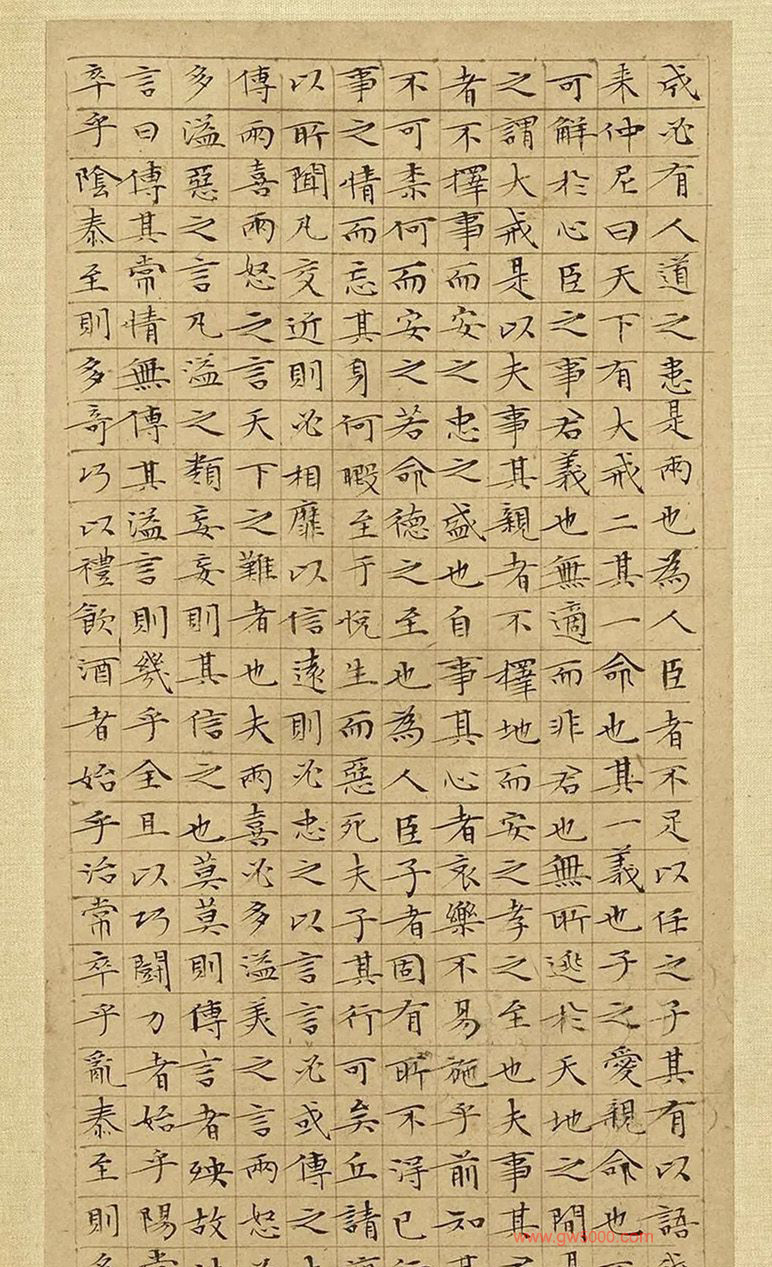 成必有人道之患是兩也為人臣者不足以任之子其有以語
来仲尼曰天下有大戒二其一命也其一義也子之愛親命也
可解於心臣之事君義也無適而非君也無所逃於天地之間
之謂大戒是以夫事其親者不擇地而安之孝之至也夫事其
者不擇事而安之忠之盛也自事其心者哀樂不易施乎前知
不可柰何而安之若命德之至也為人臣子者固有所不得已
事之情而忘其身何暇至于悅生而惡死夫子其行可矣丘請
以所聞凡交近則必相靡以信遠則必忠之以言言必或傳之
傳兩喜兩怒之言天下之難者也夫兩喜必多溢美之言兩怒
多溢惡之言凡溢之類妄妄則其信之也莫莫則傳言者殃故
言曰傳其常情無傳其溢言則幾乎全且以巧鬪力者始乎陽
卒乎陰泰至則多奇巧以禮飲酒者始乎治常卒乎亂泰至則
www.gw5000.com